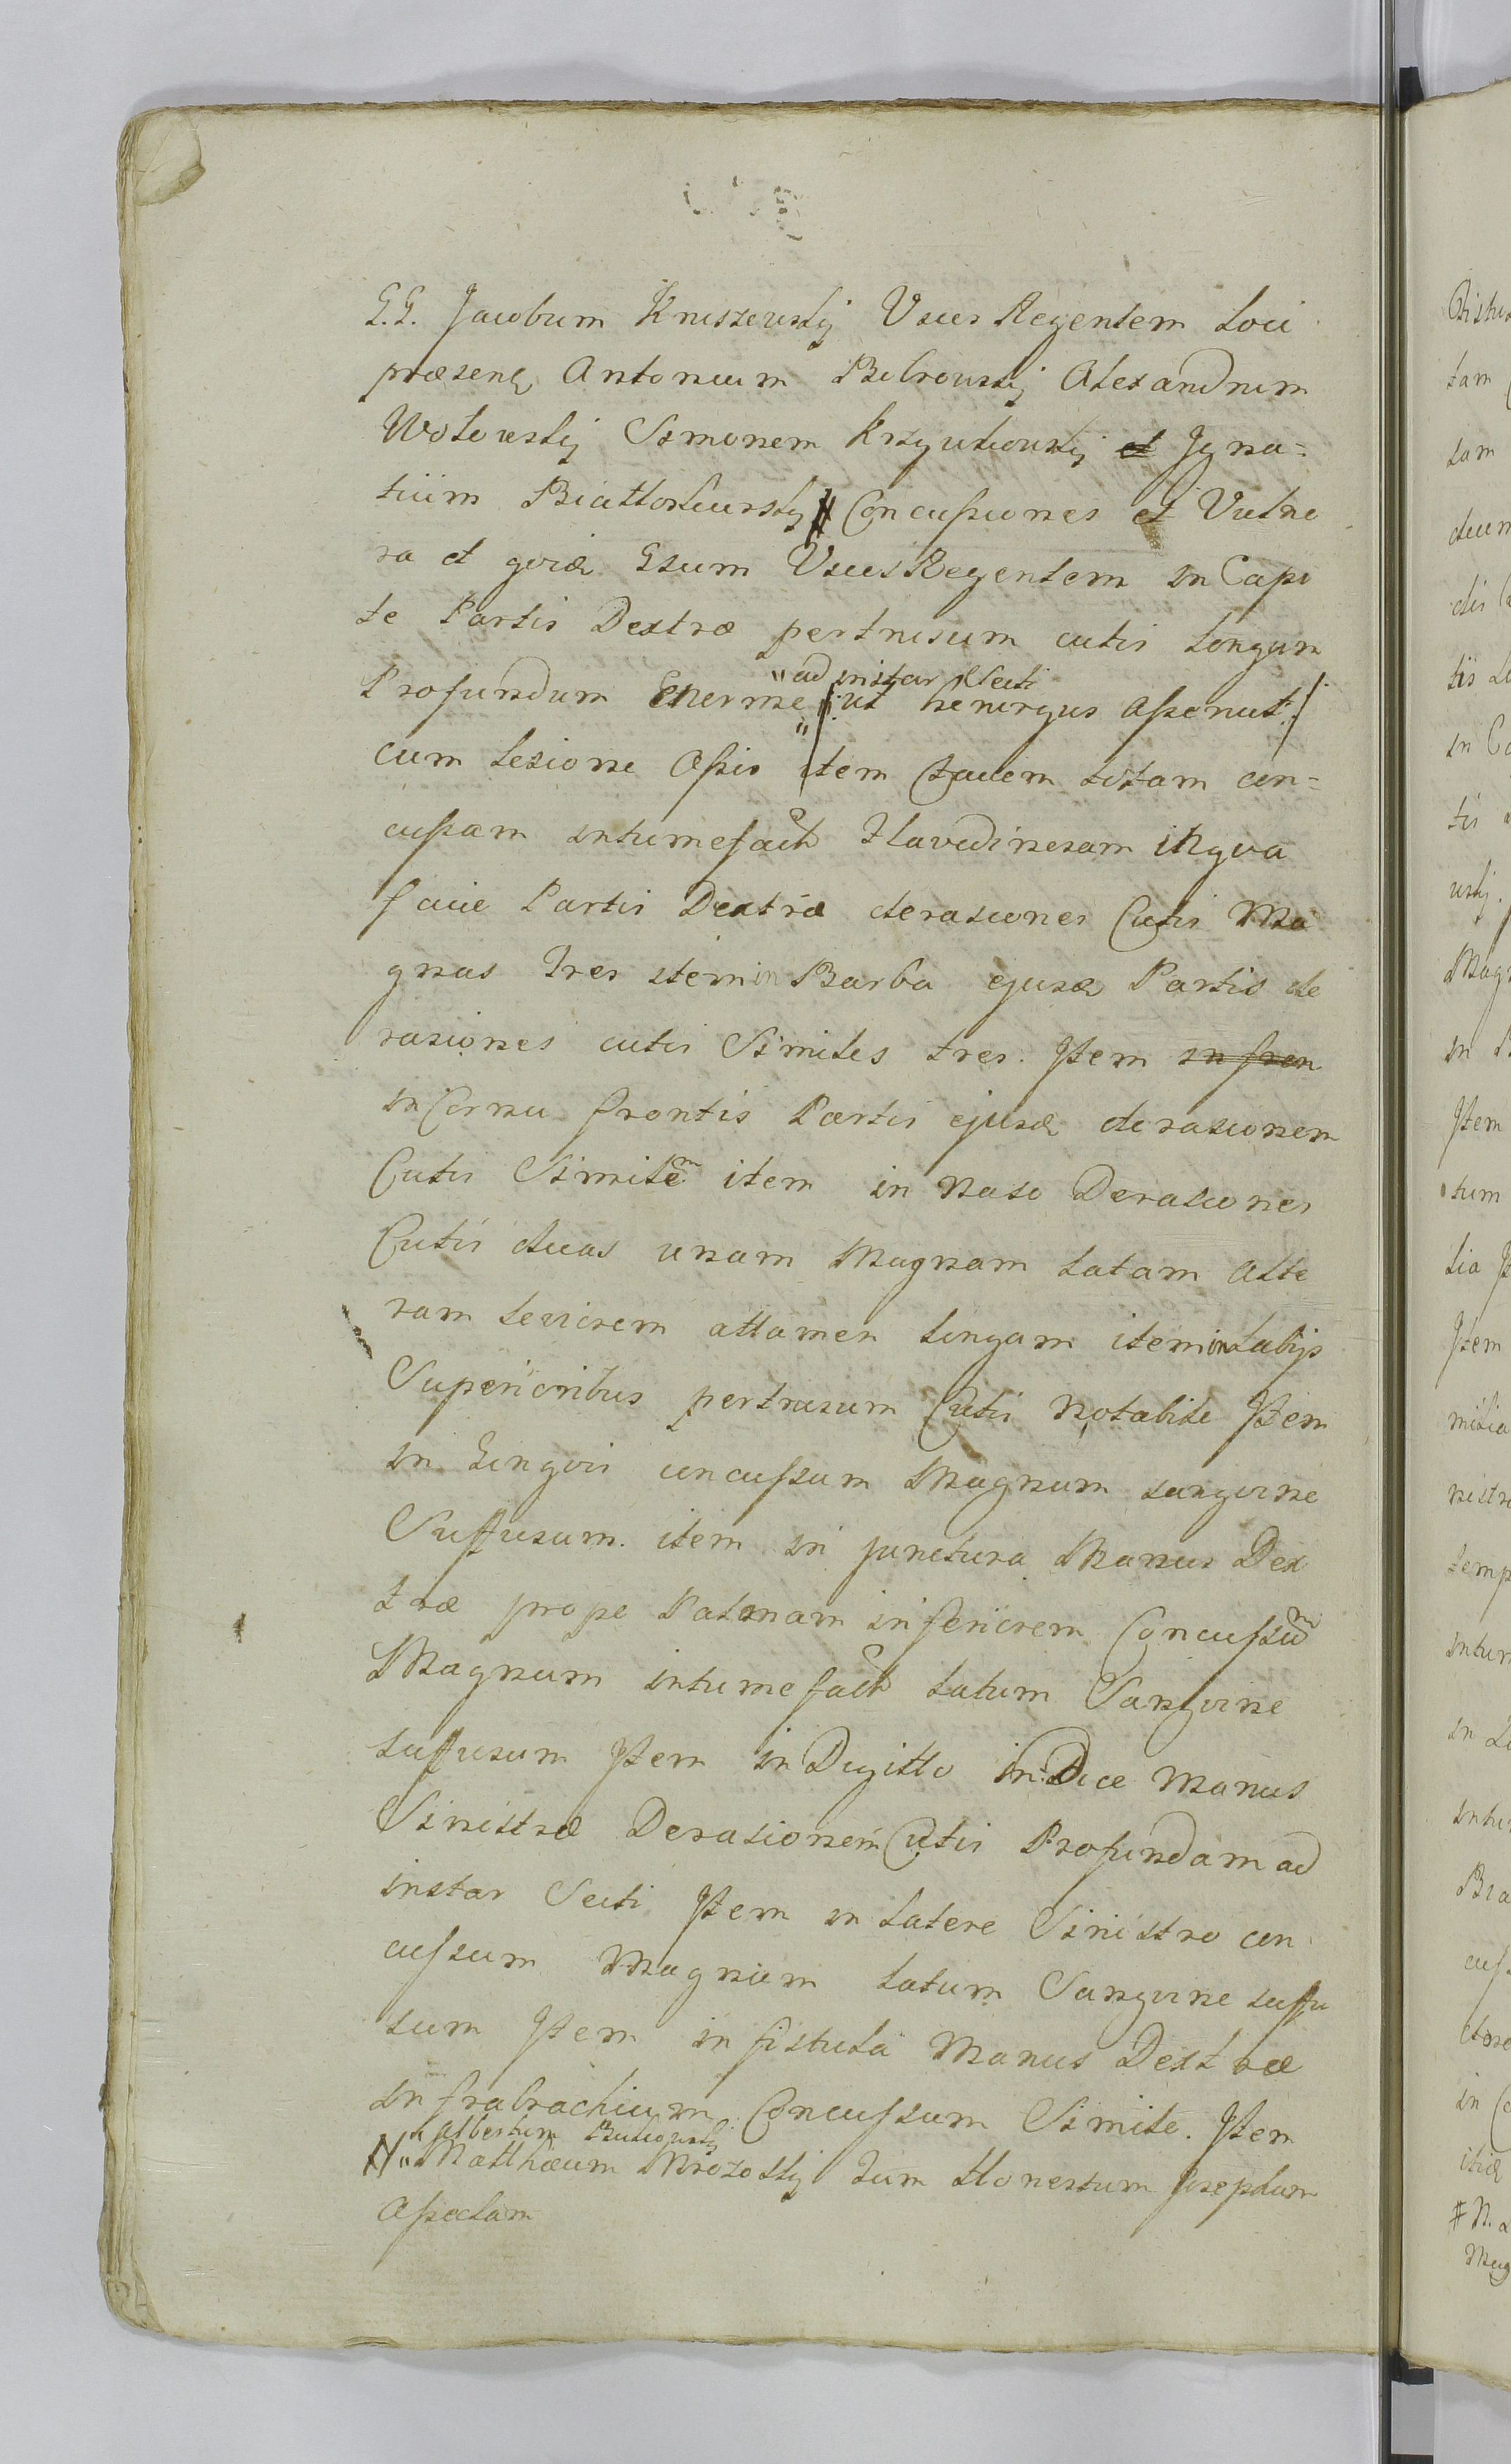 G.G. Jacobum Kruszewskij Vices Regentem Loci
præsen. Antonium Bobrowskij Alexandrum
Wolowskij Simonem Krzyutiowskij et Igna=
tium Biatto # Concussiones et Vulne
ra et qvid. Gsum Vices Regentem in Capi
te Partis Dextræ pertusum cutis longum
"ad instar Secti
Profundum Enorme " /: ut chirurgus asseruit :/
cum lesione Ossis item faciem totam con=
cussam intumefact. flavedinesam in qva
facie Partis Dextræ derasiones Cutis Ma
gnas Tres item in Barba ejusd. Partis de
rasiones cutis Similes tres. Item in fron
in Cornu frontis Partis ejusd. derasionem
Cutis Similem item in Naso Derasiones
Cutis duas unam Magnam latam alte
ram leviorem attamen longam item in Labijs
Superioribus pertrusum Cutis Notabile Item
in Gingvis concussum Magnum sangvine
Suffusum. item in junctura Manus Dex
træ prope Palmam inferiorem Concussum
Magnum intumefact. latum Sangvine
suffusum Item in Digitto indice Manus
Sinistræ Derasionem Cutis Profundam ad
instar Secti Item in latere Sinistro con
cussum Magnum latum Sangvine suffu
sum Item in fistula Manus Dextræ
infra brachium Concussum Simile. Item
" Albertum Butkowskij
N " Matthæum Mrozoskij tum Honestum Josephum